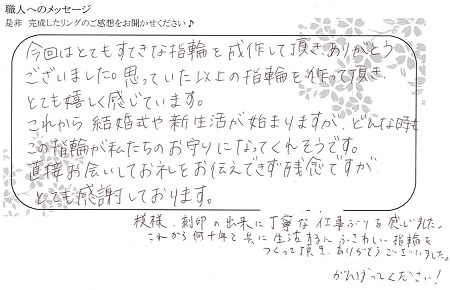 職人へのメッセージ
是非 完成したリングのご感想をお聞かせください♪
今回はとてもすてきな指輪を作成して頂き、ありがとう
ございました。思っていた以上の指輪を作って頂き、
とても嬉しく感じています。
これから結婚式や新生活が始まりますが、どんな時も
この指輪が私たちのお守りになってくれそうです。
直接お会いしてお礼をお伝えできず残念ですが
とても感謝しております。
模様、刻印の出来に丁寧な仕事ぶりを感じました。
これから何十年と共に生活するに ふさわしい指輪を
つくって頂き、ありがとうございました。
がんばってください!